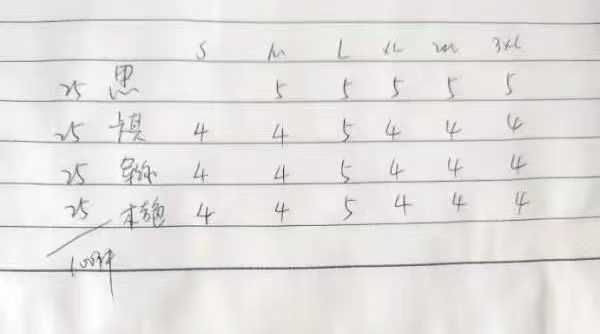 S M L XL 2XL 3XL
25 黑 5 5 5 5 5
25 卡其 4 4 5 4 4 4
25 4 4 5 4 4 4
25 本色 4 4 5 4 4 4
100件